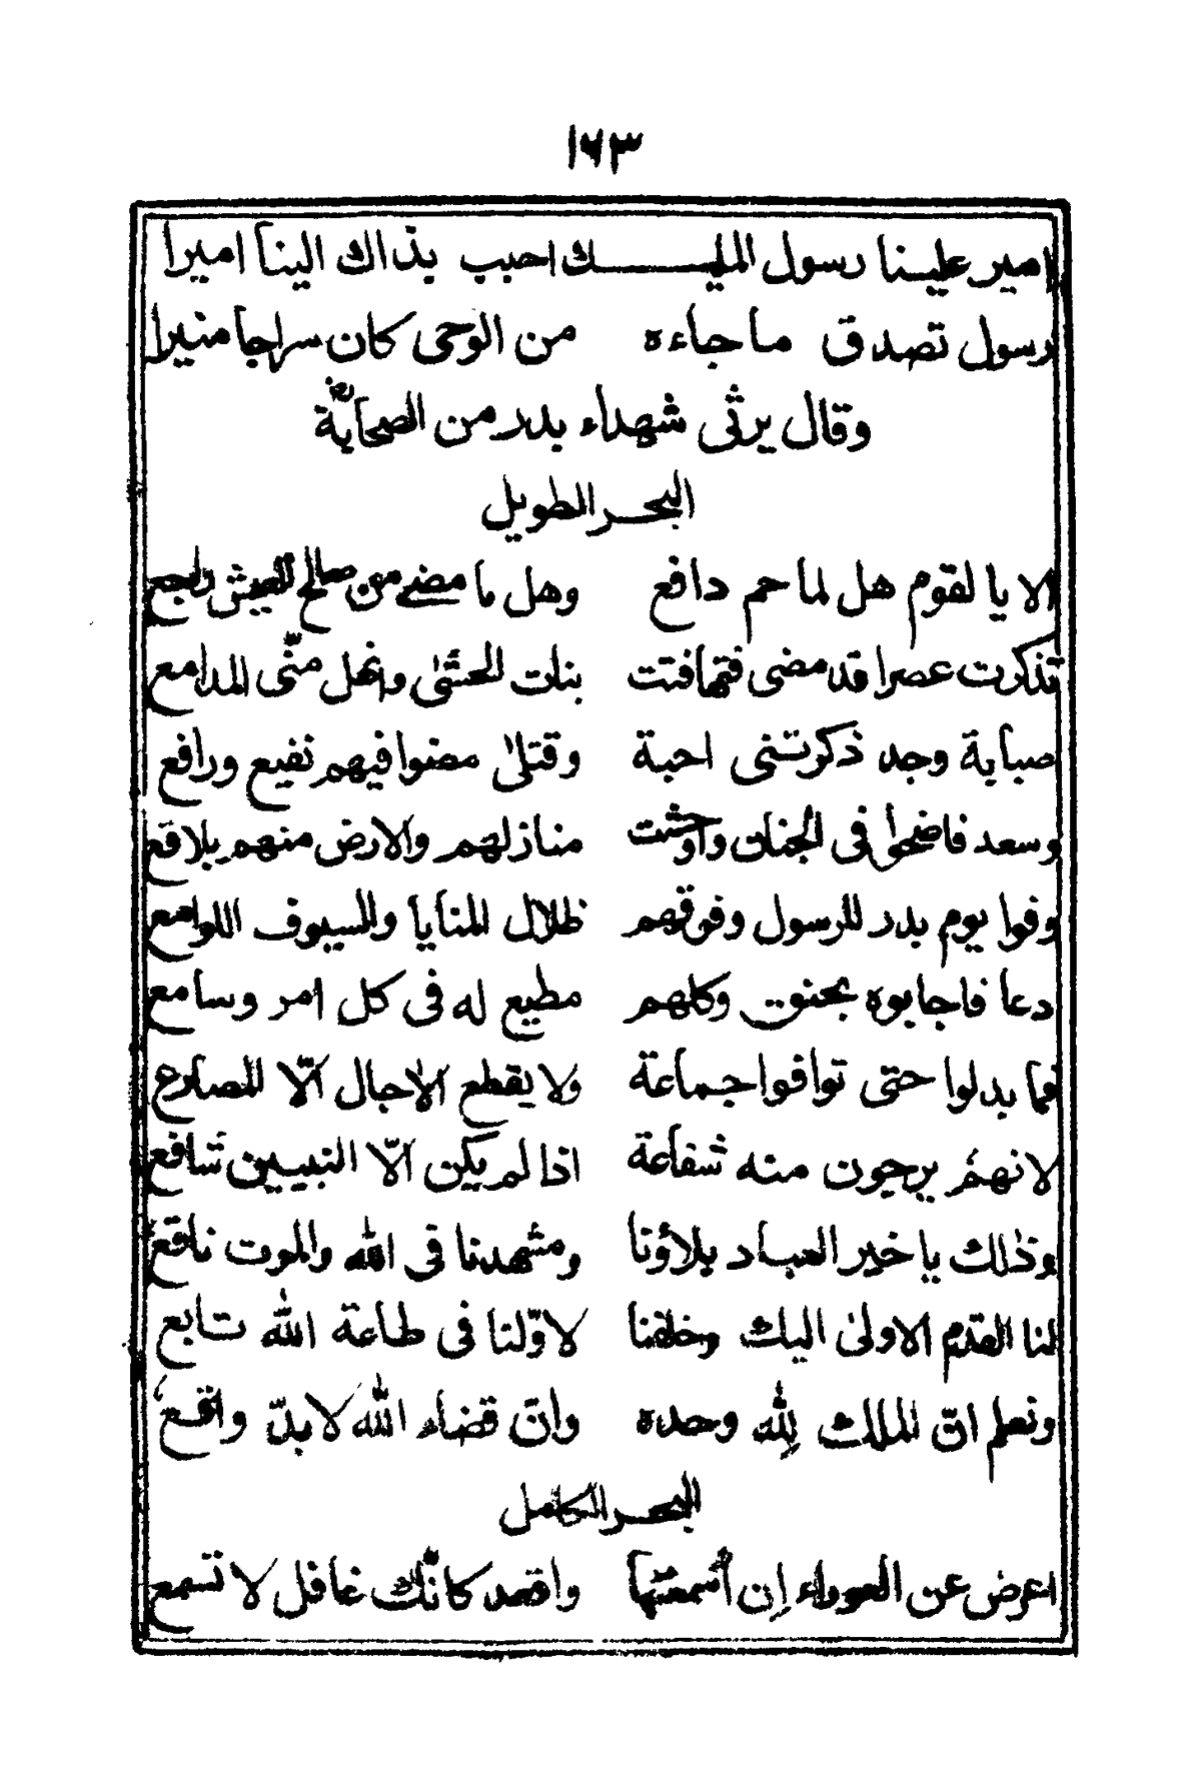 ١٦٣
امير علينا رسول المليـــــك احبب بذاك الينا اميرا
رسول تصدق ما جاءه من الوحى كان سراجا منيرا
وقال يرثى شهداء بدر من الصحابة
البحر الطويل
الا يا لقوم هل لما حم دافع وهل ما مضى من صالح العيش راجع
تذكرت عصرا قد مضى فتهافتت بنات الحشى وانهل منّى المدامع
صبابة وجد ذكرتنى احبة وقتلى مضوا فيهم نفيع ورافع
وسعد فاضحوا فى الجنان واوحشت منازلهم والارض منهم بلاقع
وفوا يوم بدر للرسول وفوقهم ظلال المنايا والسيوف اللوامع
دعا فاجابوه بحق وكلهم مطيع له فى كل امر وسامع
فما بدلوا حتى توافوا جماعة ولا يقطع الاجال الّا المصارع
لانهم يرجون منه شفاعة اذا لم يكن الّا النبيين شافع
وذلك يا خير العباد بلاؤنا ومشهدنا فى الله والموت ناقع
لنا القدم الاولى اليك وخلفنا لاوّلنا فى طاعة الله تابع
ونعلم انّ الملك لله وحده وانّ قضاء الله لا بدّ واقع
البحر الكامل
اعرض عن العوراء إن أسمعتها واقعد كانّك غافل لا تسمع